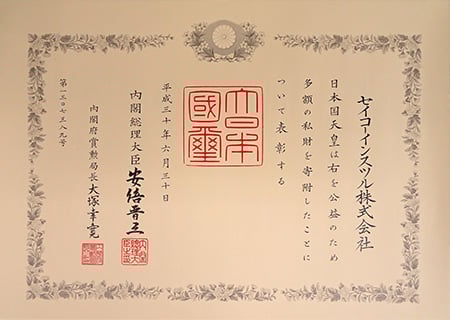 セイコーインスツル株式会社
日本国天皇は右を公益のため
多額の私財を寄附したことに
ついて表彰する
平成三十年六月三十日
大日本
國璽
内閣総理大臣 安倍晋三
内閣府賞勲局長 大塚幸寛
第一三〇七三八九号